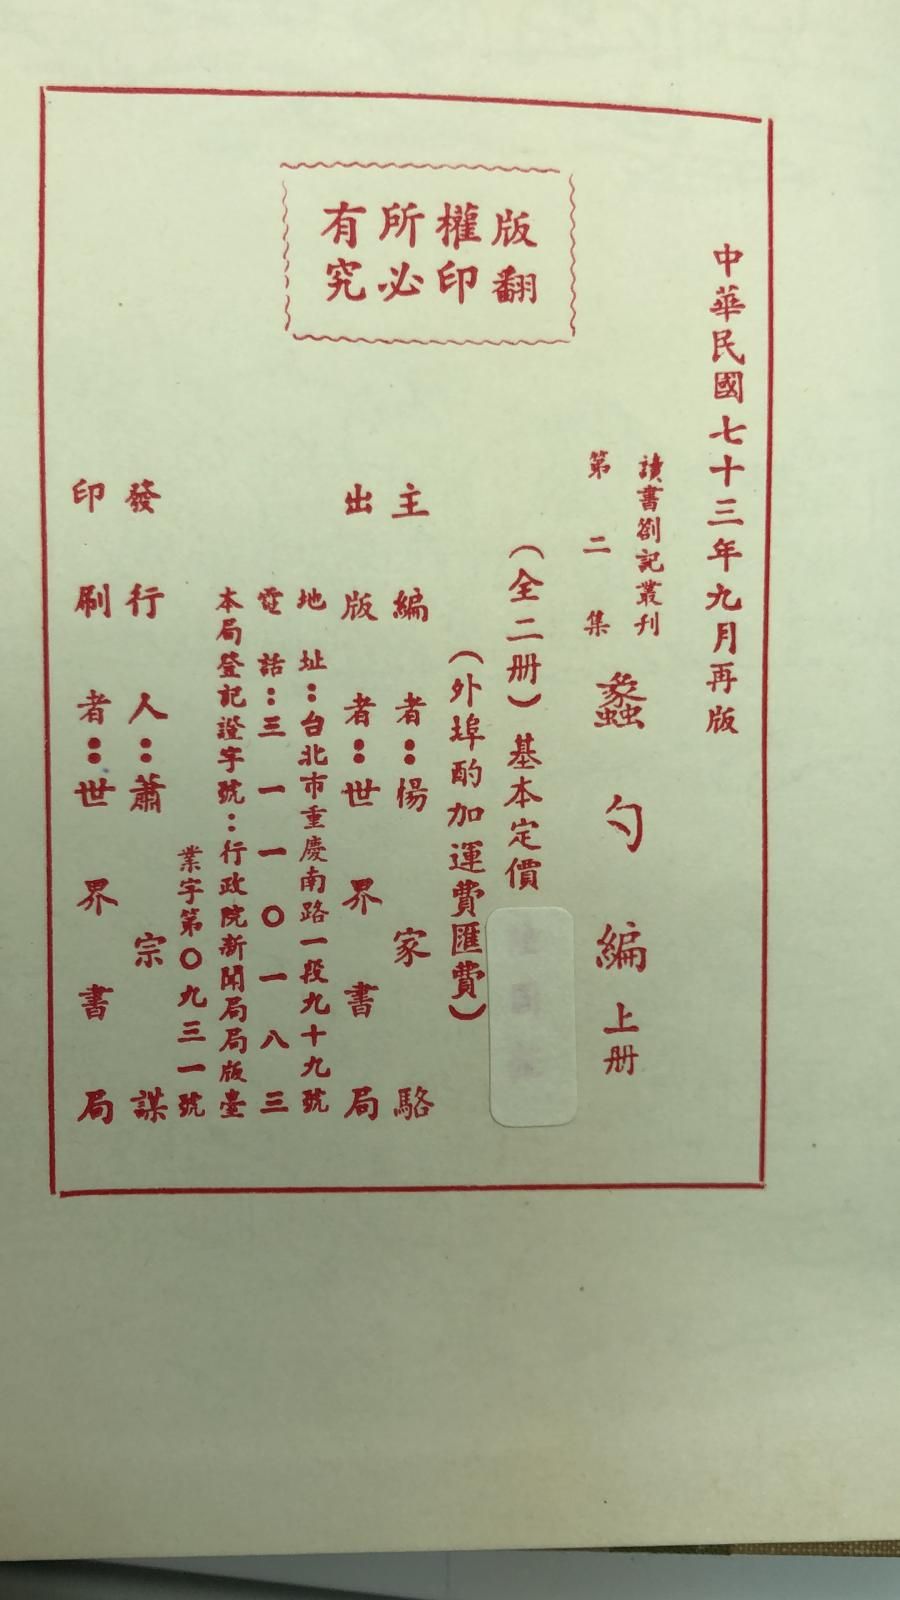 版權所有
翻印必究
中華民國七十三年九月再版
讀書劄記叢刊
第二集
蠡勺編上册
（全二册）基本定價
（外埠酌加運費匯費）
主編者：楊家駱
出版者：世界書局
地址：台北市重慶南路一段九十九號
電話：三一一〇一八三
本局登記證字號：行政院新聞局局版臺
業字第〇九三一號
發行人：蕭宗謀
印刷者：世界書局